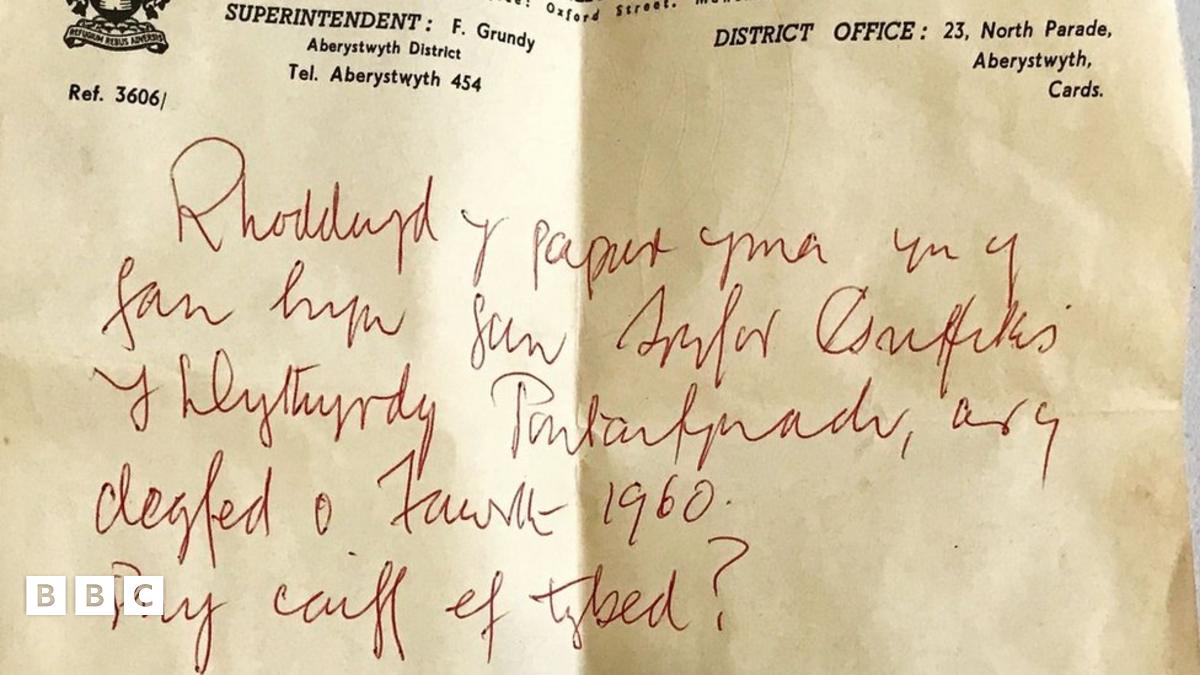 Oxford Street.
REFUGIUM REBUS ADVERSIS
SUPERINTENDENT: F. Grundy
Aberystwyth District
Tel. Aberystwyth 454
Ref. 3606/
DISTRICT OFFICE: 23, North Parade,
Aberystwyth,
Cards.
Rhoddwyd y papur yma yn y
fan hyn gan Trefor Griffiths
Y Llythyrdy Pontarfynach, ar y
degfed o Fawrth 1960.
Pwy caiff ef tybed?
BBC